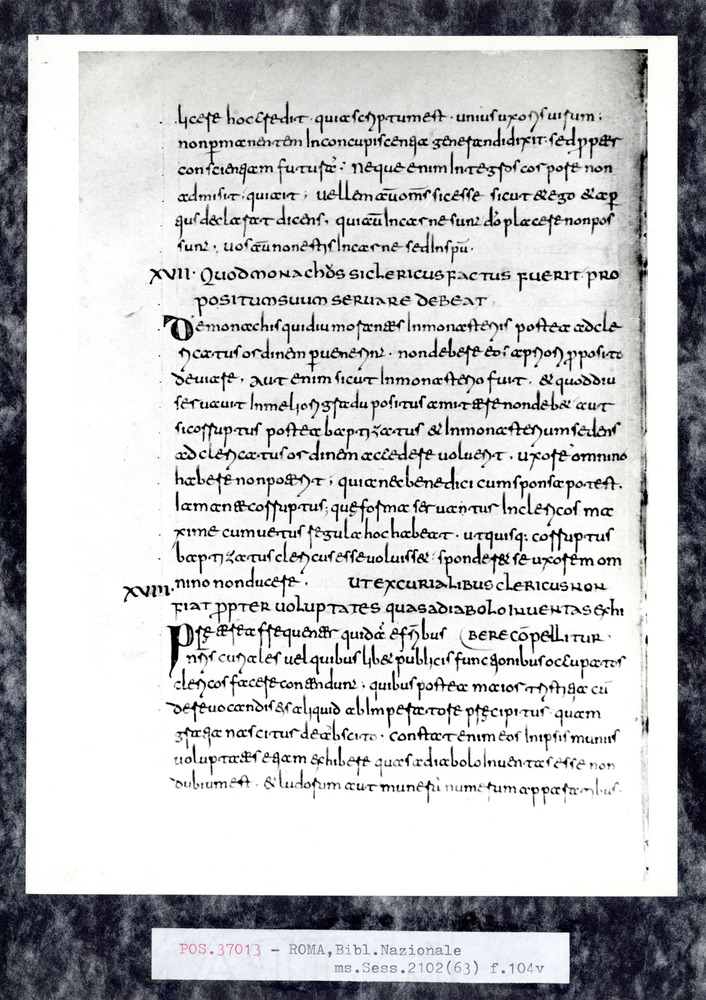 licere hoc credit · quia scriptum est · unius uxoris uirum ;
non p̄manentem In concupiscentia generandi dixit · sed pp̄ter
conscientiam futurā · Neque enim Integros corpore non
admisit · qui ait ; uellem aū om̄s sic esse sicut & ego & ap̄
tius declarat dicens · qui aū In carne sunt dō placere non pos
sunt · uos aū non estis In carne sed In sp̄u ·
XVII · QUOD MONACHUS SI CLERICUS FACTUS FUERIT PRO
POSITUM SUUM SERUARE DEBEAT
De monachis qui diu morantes In monasteriis postea ad cle
ricatus ordinem p̄uenerint · non debere eos a priori p̄posito
deuiare · aut enim sicut In monasterio fuit · & quod diu
seruauit In meliori gradu positus amittere non deb& aut
si corruptus postea baptizatus & In monasterium sedens
ad clericatus ordinem accedere uoluerit · uxorē omnino
habere non poterit ; quia nec benedici cum sponsa potest ·
Iam ante corruptus ; quę forma seruantur In clericos ma
xime cum uetus regula hoc habeat · ut quisq; corruptus
baptizatus clericus esse uoluisset · sponder& se uxorem om
nino non ducere · UT EX CURIALIBUS CLERICUS NON
XVIII ·
FIAT P̄PTER UOLUPTATES QUAS A DIABOLO INUENTAS EXHI
BERE CŌPELLITUR ·
Prętęrea frequenter quidā ex fr̄ibus
nr̄is curiales uel quibuslib& publicis functionibus occupatos
clericos facere contendunt · quibus postea maior tristitia cū
de reuocandis eis aliquid ab Imperatore pręcipitur · quam
gratia nascitur de abscito · constat enim eos In ipsis muniis
uoluptates etiam exhibere quas a diabolo Inuentas esse non
dubium est · & ludorum aut munerū numerum apparatibus
POS.37013 - ROMA,Bibl.Nazionale
ms.Sess.2102(63) f.104v